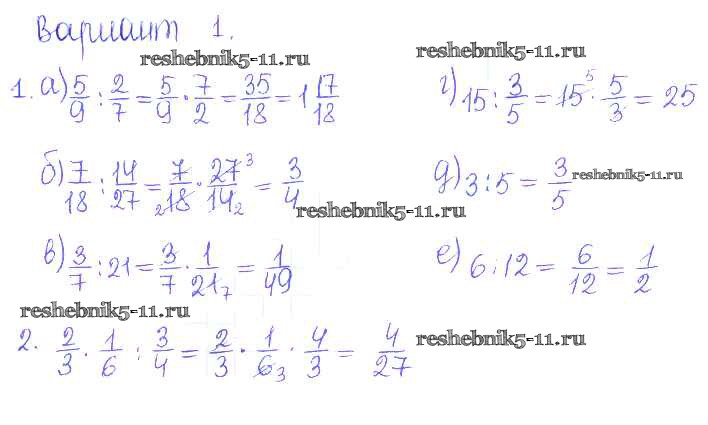 Вариант 1.
reshebnik5-11.ru
reshebnik5-11.ru
1. а) 5/9 : 2/7 = 5/9 · 7/2 = 35/18 = 1 17/18
г) 15 : 3/5 = 15 5 · 5/3 = 25
б) 7/18 : 14/27 = 7/18 2 · 27 3/14 2 = 3/4
д) 3 : 5 = 3/5
reshebnik5-11.ru
reshebnik5-11.ru
в) 3/7 : 21 = 3/7 · 1/21 7 = 1/49
е) 6 : 12 = 6/12 = 1/2
reshebnik5-11.ru
2. 2/3 · 1/6 : 3/4 = 2/3 · 1/6 3 · 4/3 = 4/27
reshebnik5-11.ru